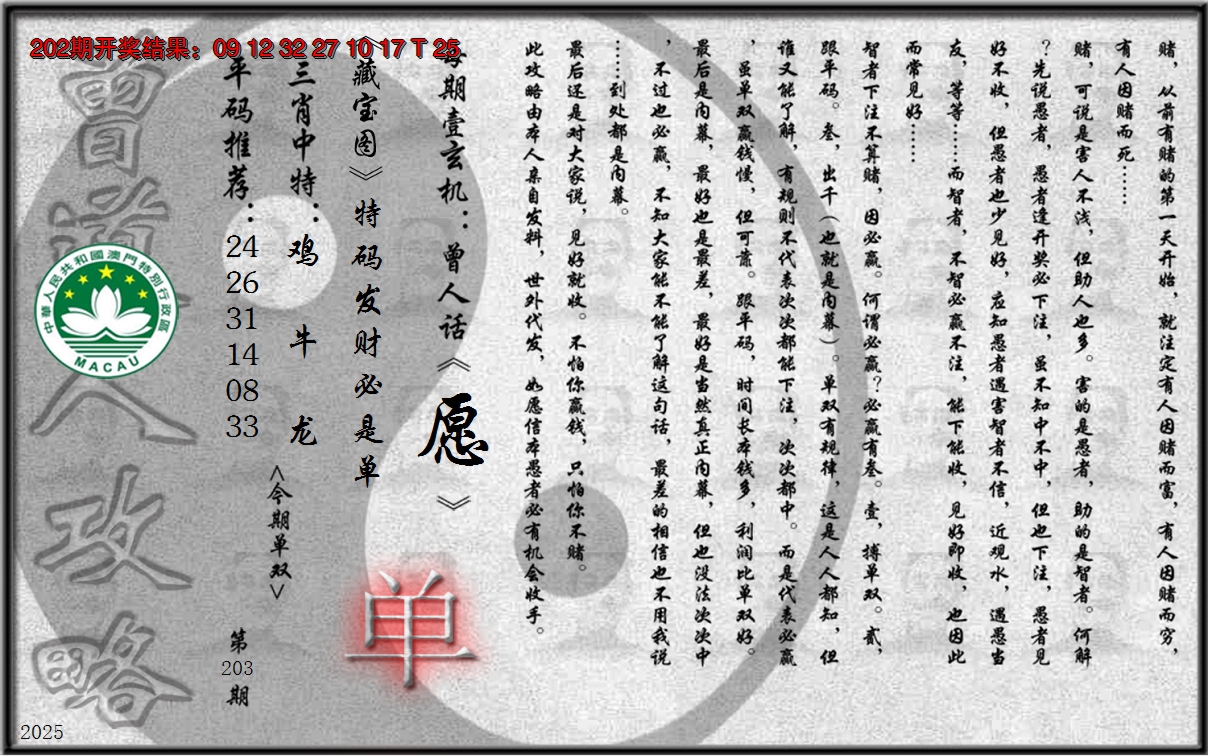 202期开奖结果：09 12 32 27 10 17 T 25
赌，从前有赌的第一天开始，就注定有人因赌而富，有人因赌而穷，
有人因赌而死……
赌，可说是害人不浅，但助人也多。害的是愚者，助的是智者。何解
？先说愚者，愚者逢开奖必下注，虽不知中不中，但也下注，愚者见
好不收，但愚者也少见好，应知愚者遇害智者不信，近观水，遇愚当
友，等等……而智者，不智必赢不注，能下能收，见好即收，也因此
而常见好……
智者下注不算赌，因必赢。何谓必赢？必赢有叁。壹，搏单双。贰，
跟平码。叁，出千（也就是内幕）。单双有规律，这是人人都知，但
谁又能了解，有规则不代表次次都能下注，次次都中。而是代表必赢
，虽单双赢钱慢，但可靠。跟平码，时间长本钱多，利润比单双好。
最后是内幕，最好也是最差，最好是当然真正内幕，但也没法次次中
，不过也必赢，不知大家能不能了解这句话，最差的相信也不用我说
……到处都是内幕。
最后还是对大家说，见好就收。不怕你赢钱，只怕你不赌。
此攻略由本人亲自发料，世外代发，如愿信本愚者必有机会收手。
每期壹玄机：曾人话《愿》
《藏宝图》特码发财必是单
单
三肖中特：鸡 牛 龙
<今期单双>
平码推荐：24 26 31 14 08 33
第203期
曾道人攻略
中華人民共和國澳門特別行政區
MACAU
2025